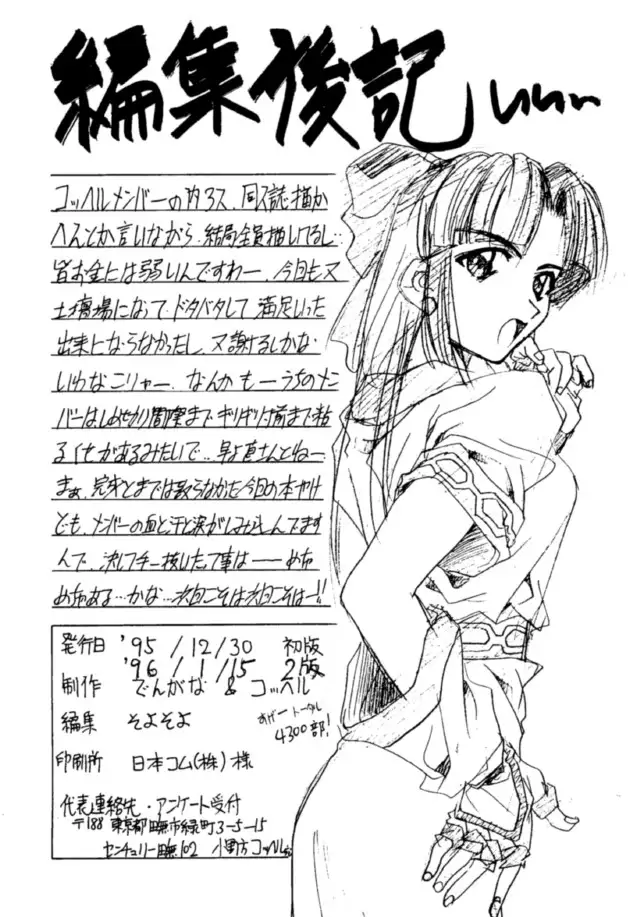 編集後記 いいい
コッヘルメンバーの 同人誌描か
へんとか言いながら、結局全員描いてるし…
皆お金には弱いんですわー、今回も又
土壇場になって、ドタバタして満足いった
出来にならなかったし、又謝るしかな
いわなこりゃー、なんかもーうちのメン
バーはしめきり間際まで、ギリギリ寸前まで粘
るくせがあるみたいで…早よ直さんとねー
まぁ、完ペキとまでは言えなかった今回の本やけ
ども、メンバーの血と汗と涙がしみ込んでます
んで、決して手ー抜したって事は――めちゃ
めちゃある…かな…次回こそは次回こそは…!!
発行日 '95 / 12 / 30 初版
'96 / 1 / 15 2版
制作 でんがな & コッヘル
編集 そよそよ
すげートータル
4300部!
印刷所 日本コム(株)様
代表連絡先・アンケート受付
〒188 東京都田無市緑町3-5-15
センチュリー田無102 小野方 コッヘル